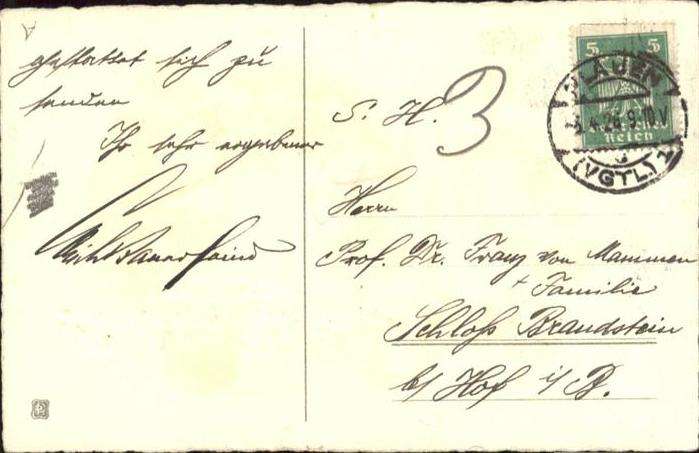 gestattet sich zu
senden
Ihr sehr ergebener
S. H. 3
Herrn
Prof. Dr. Franz von Mammen
+ Familie
Schloß Brandstein
b/ Hof i/B.
5 5
Deutsches
Reich
PLAUEN
4.26.9-10.V
(VGTL.) 1